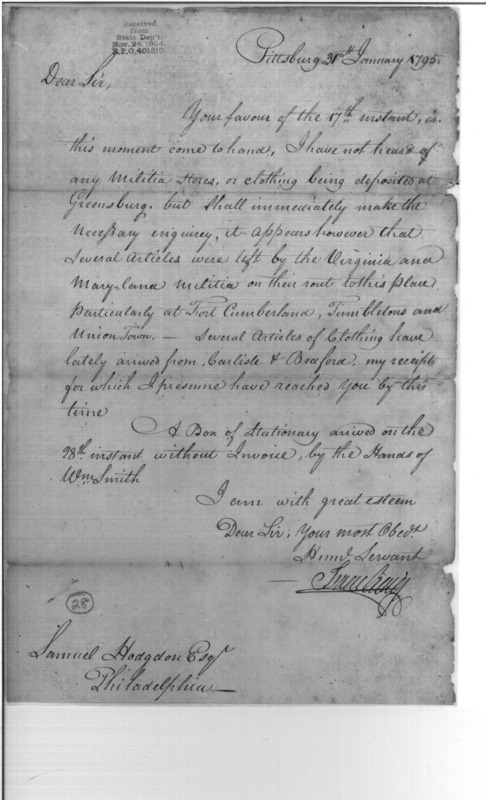 Received
from
State Dep't.
Nov. 24, 1894.
R.P.O. 401810.
Pittsburg 31st January 1795.
Dear Sir,
Your favour of the 17th instant, is
this moment come to hand, I have not heard of
any Militia stores, or clothing being deposited at
Greensburg, but shall immediately make the
necessary enquirey, it appears however that
Several Articles were left by the Virginia and
Mary=land Militia on their rout to this place,
particularly at Fort Cumberland, Tumbletons and
Union Town, — Several Articles of Clothing have
lately arrived from Carlisle & Bedford, my receipts
for which I presume have reached You by this
time
A Box of Stationary arrived on the
28th instant without Invoice, by the Hands of
Wm. Smith
I am with great esteem
Dear Sir, Your most Obedt.
Huml. Servant
Isaac Craig
28
Samuel Hodgdon Esqr
Philadelphia —